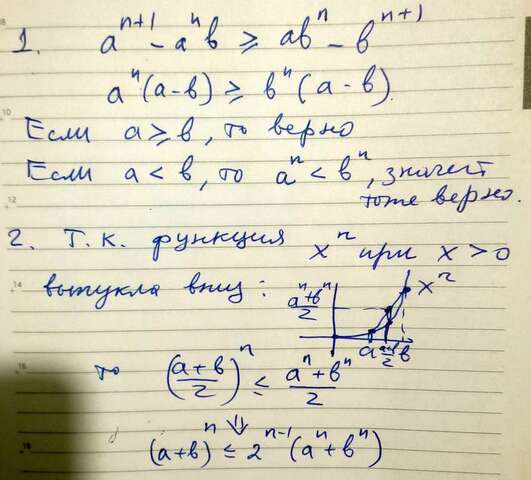 1. a^{n+1} - a^n b ≥ ab^n - b^{n+1}
a^n (a-b) ≥ b^n (a-b).
Если a ≥ b, то верно
Если a < b, то a^n < b^n, значит
тоже верно.
2. Т.к. функция x^n при x > 0
выпукла вниз:
(a^n + b^n)/2
x^n
a (a+b)/2 b
то ((a+b)/2)^n ≤ (a^n + b^n)/2
⇓
(a+b)^n ≤ 2^{n-1} (a^n + b^n)
10
12
14
16
18